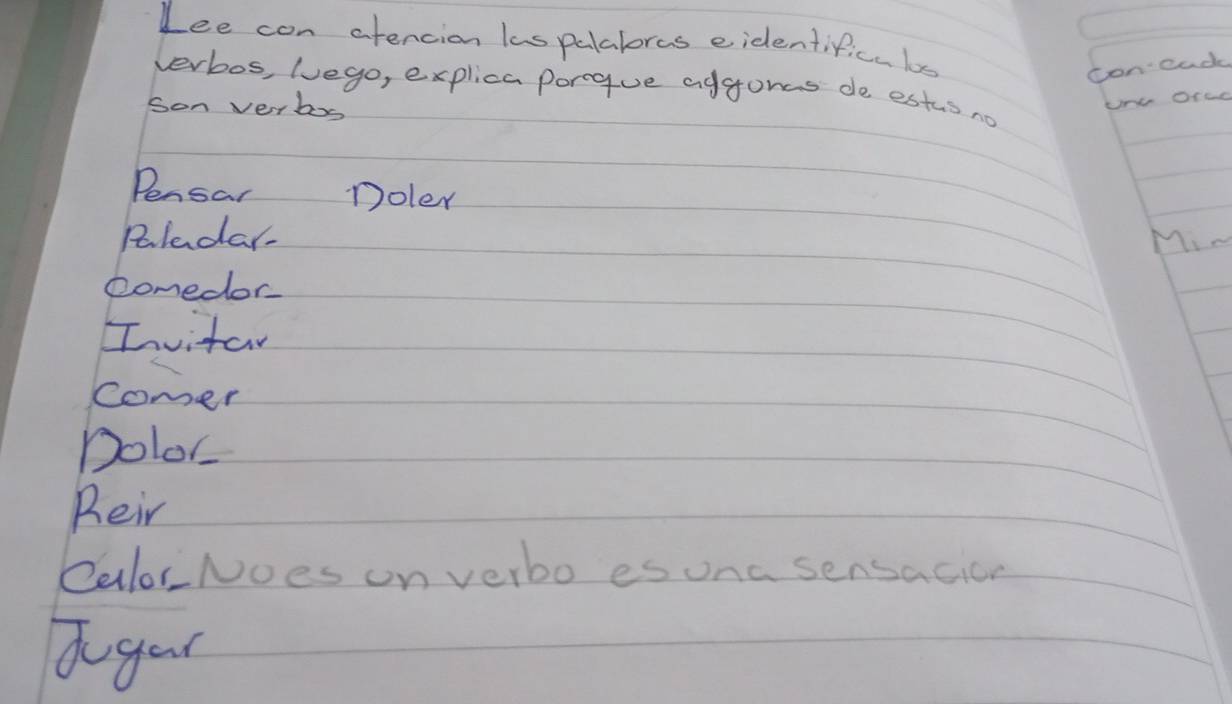 Lee con atencion las palabras e identifica los
verbos, luego, explica porque algunas de estas no
son verbos
Pensar Doler
Paladar-
comedor-
Invitar
Comer
Dolor-
Reir
Calor- No es un verbo es una sensacion
Jugar
con cada
una orac
Mi